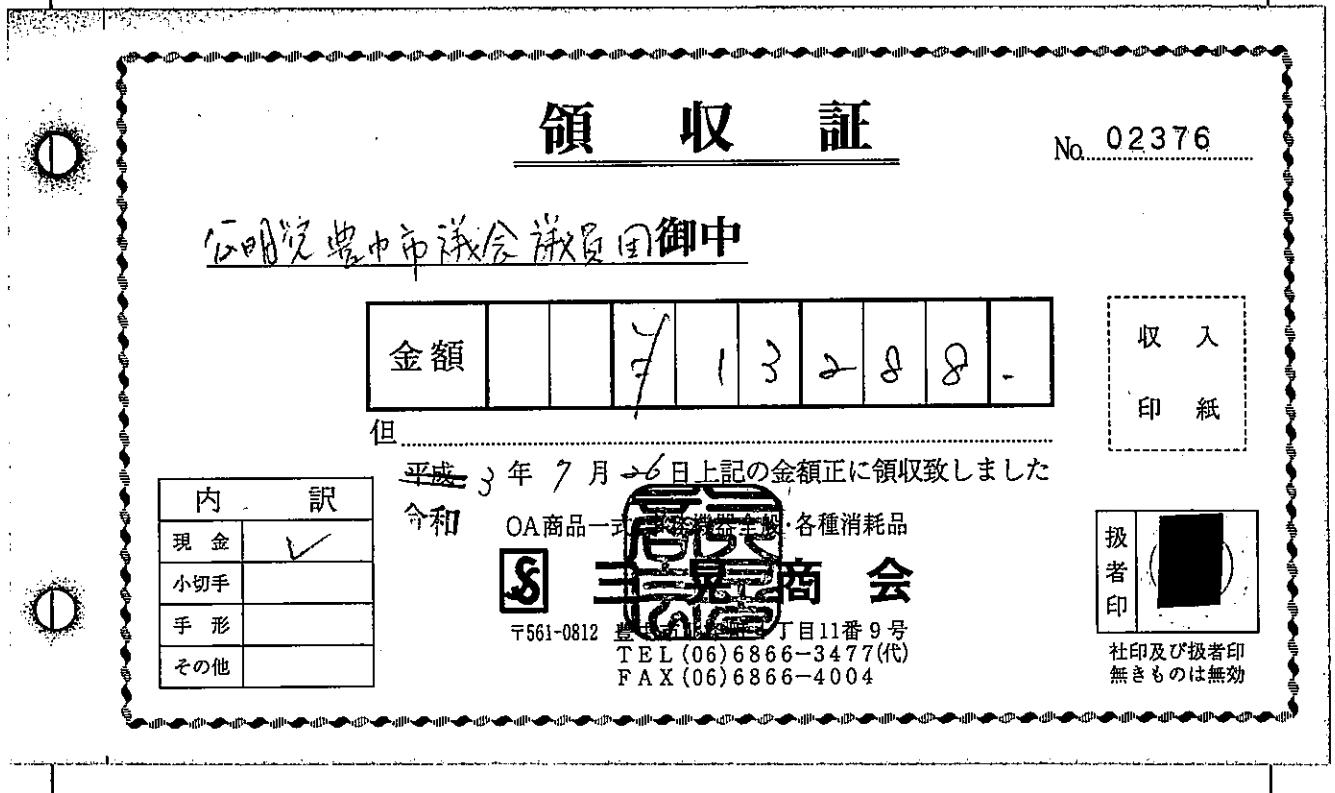 領収証
No. 02376
公明党豊中市議会議員団御中
金額 ¥13288-
収入
印紙
但
平成 3年7月26日上記の金額正に領収致しました
令和
内訳
現金 ✓
小切手
手形
その他
OA商品一式・事務機器全般・各種消耗品
三晃商会
〒561-0812 豊中市 丁目11番9号
TEL(06)6866-3477(代)
FAX(06)6866-4004
扱者印
社印及び扱者印
無きものは無効